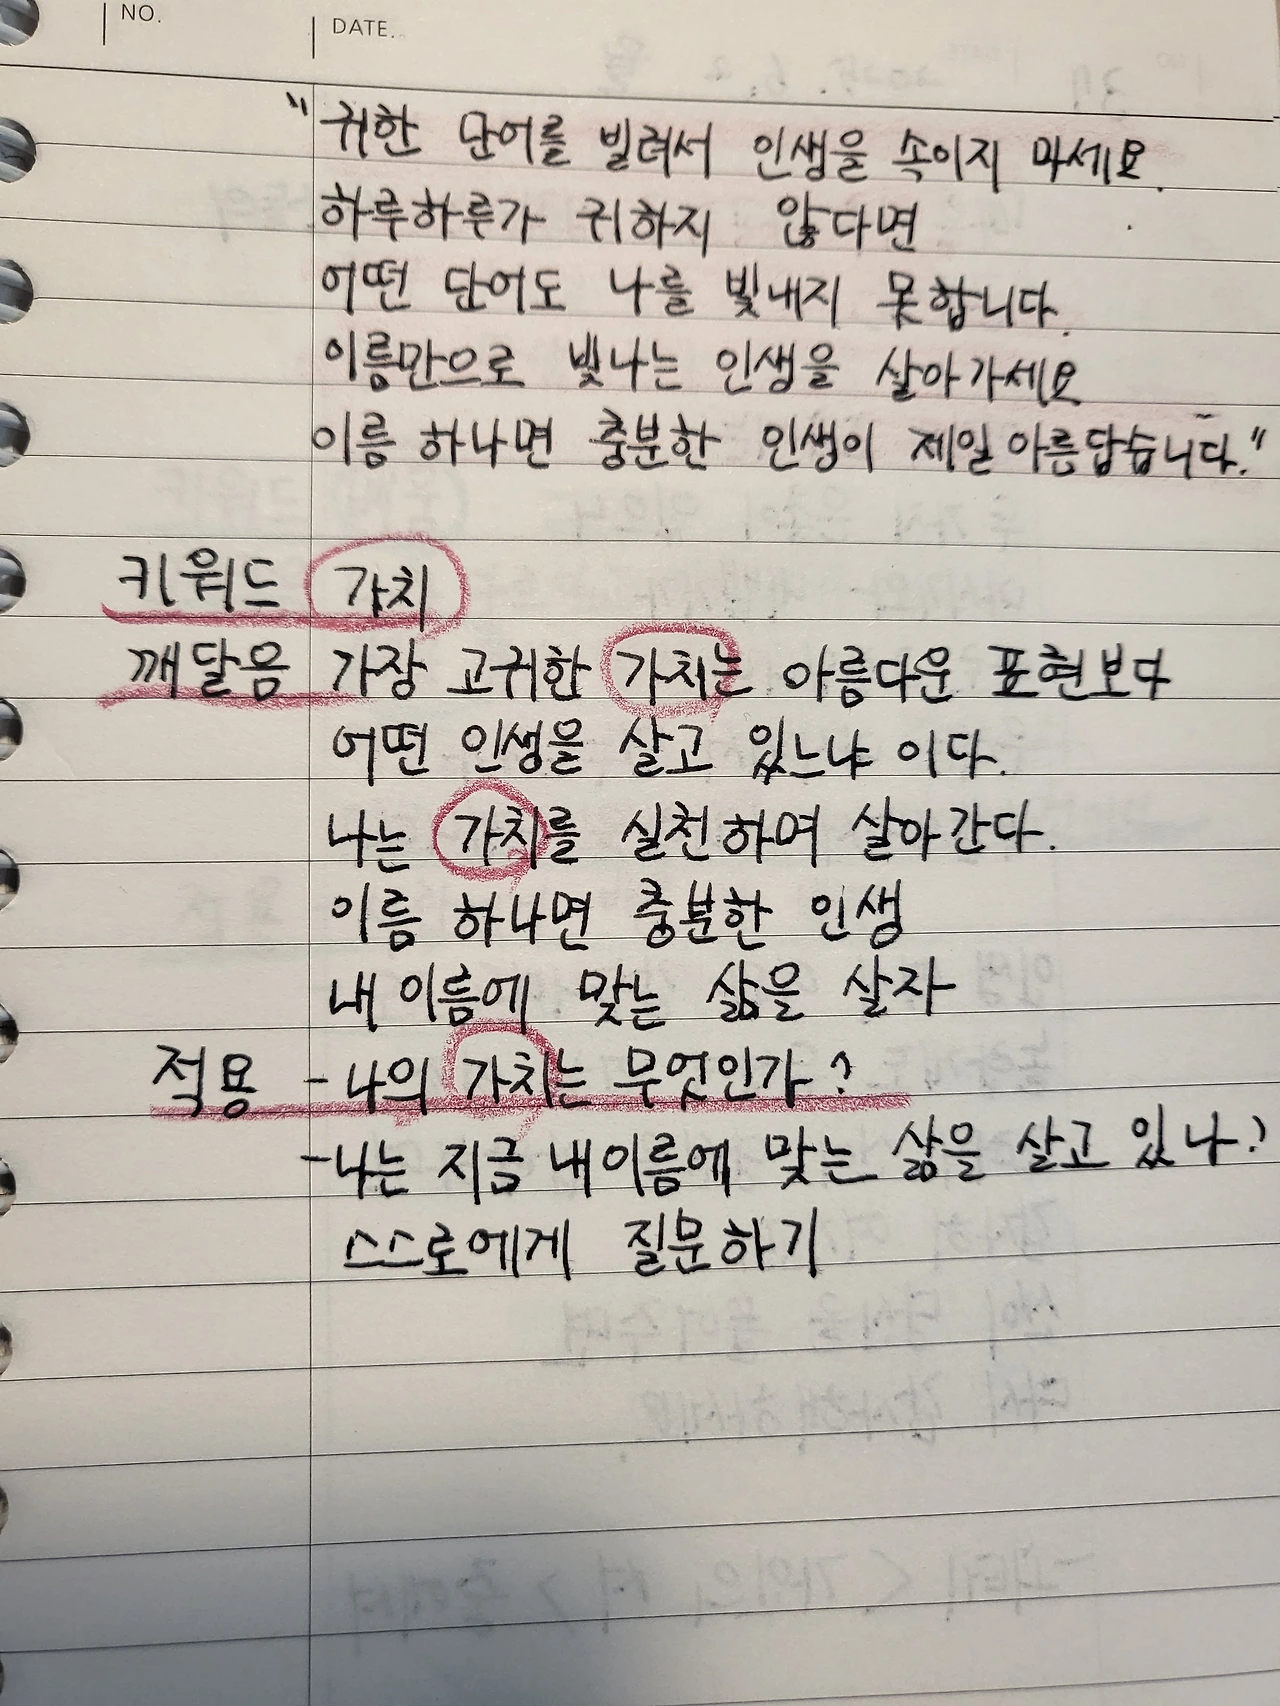 NO.
DATE.
"귀한 단어를 빌려서 인생을 속이지 마세요.
하루하루가 귀하지 않다면
어떤 단어도 나를 빛내지 못합니다.
이름만으로 빛나는 인생을 살아가세요
이름 하나면 충분한 인생이 제일 아름답습니다."
키워드 가치
깨달음 가장 고귀한 가치는 아름다운 표현보다
어떤 인생을 살고 있느냐 이다.
나는 가치를 실천하며 살아간다.
이름 하나면 충분한 인생
내 이름에 맞는 삶을 살자
적용 - 나의 가치는 무엇인가?
- 나는 지금 내 이름에 맞는 삶을 살고 있나?
스스로에게 질문하기